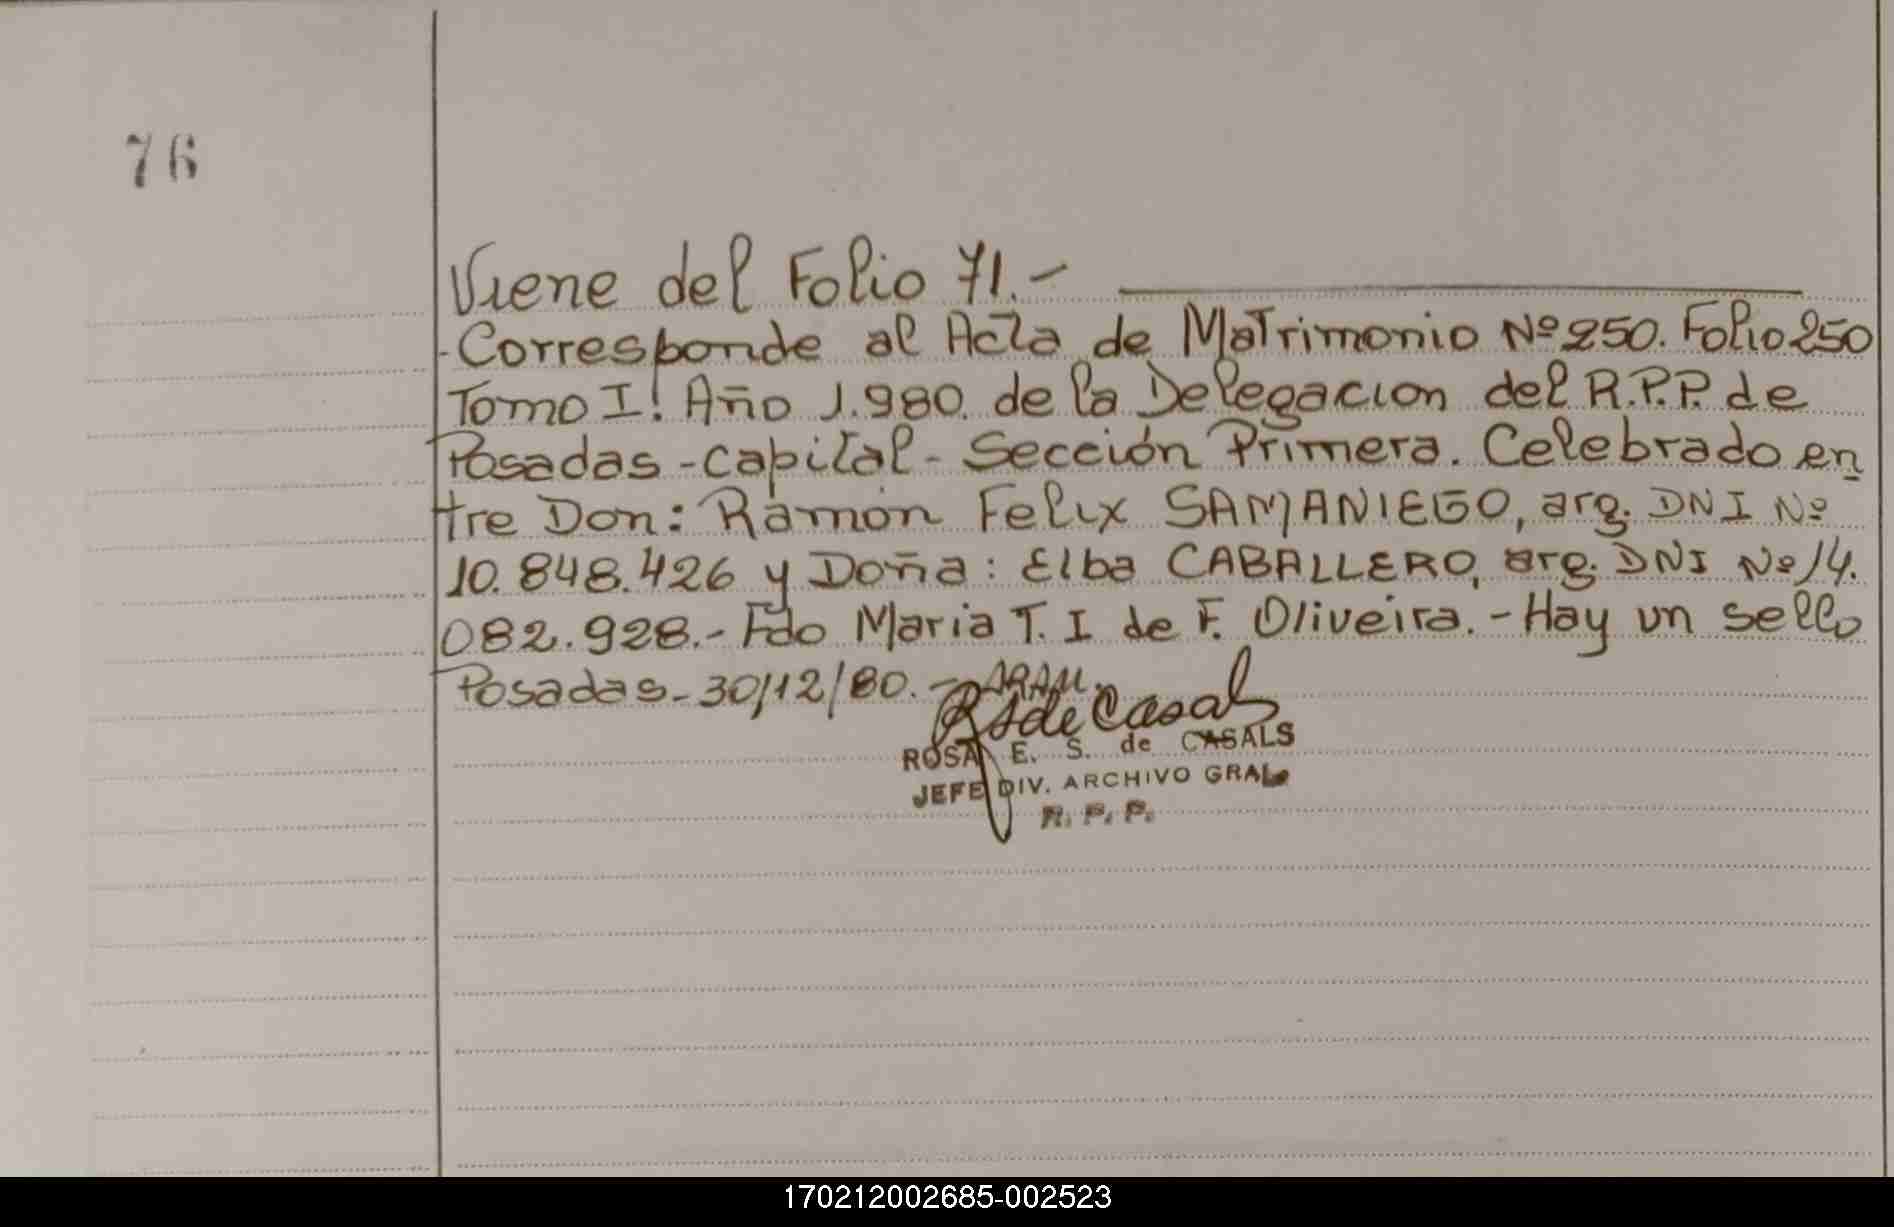 76
Viene del Folio 71.-
-Corresponde al Acta de Matrimonio Nº250. Folio 250
Tomo I! Año 1.980. de la Delegacion del R.P.P. de
Posadas-capital- Sección Primera. Celebrado en
tre Don: Ramón Felix SAMANIEGO, arg. DNI Nº
10.848.426 y Doña: Elba CABALLERO, arg. DNI Nº14.
082.928.- Fdo Maria T. I de F. Oliveira.- Hay un sello
Posadas-30/12/80.-
RSde Casals
ROSA E. S. de CASALS
JEFE DIV. ARCHIVO GRAL.
R. P. P.
170212002685-002523